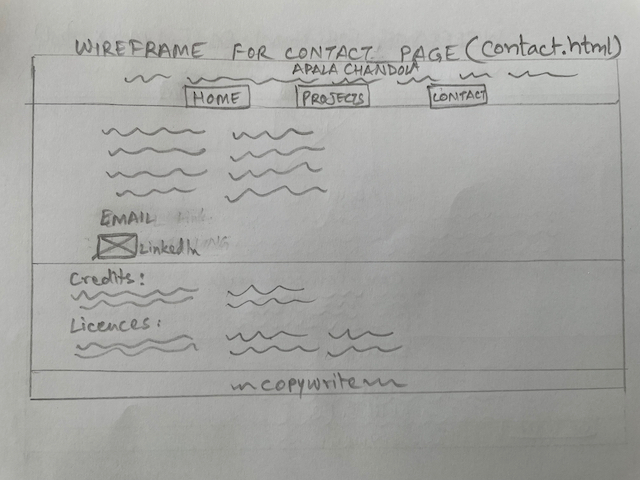 WIREFRAME FOR CONTACT PAGE (contact.html)
APALA CHANDOLA
HOME PROJECTS CONTACT
EMAIL
LinkedIn
Credits:
Licences:
copywrite